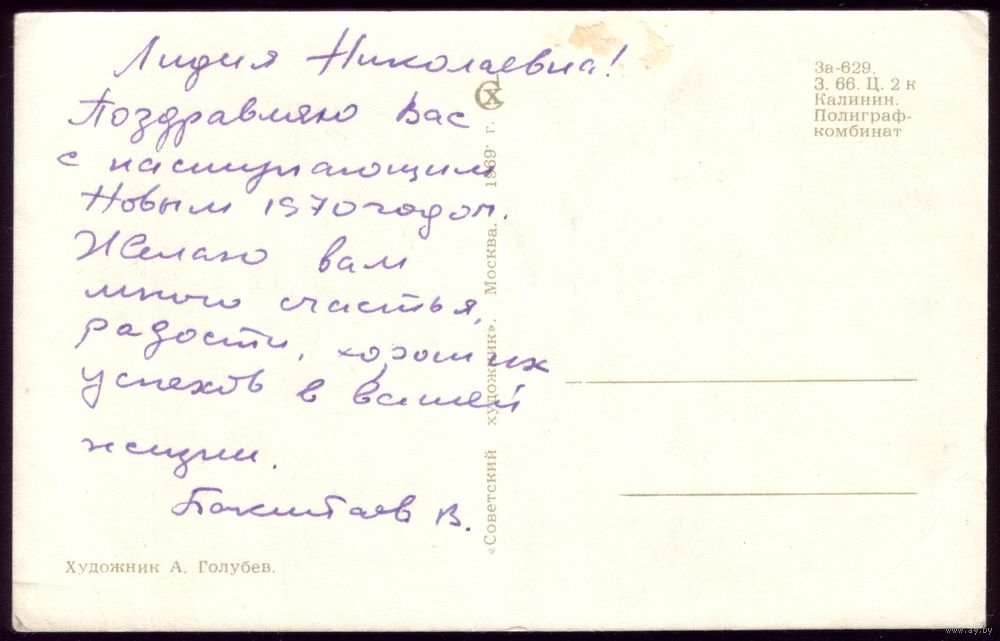 Лидия Николаевна!
Поздравляю Вас
с наступающим
Новым 1970 годом.
Желаю вам
много счастья,
радости, хороших
успехов в вашей
жизни.
В.
Художник А. Голубев.
«Советский художник». Москва. 1969 г.
За-629.
З. 66. Ц. 2 к
Калинин.
Полиграф-
комбинат
www.ay.by